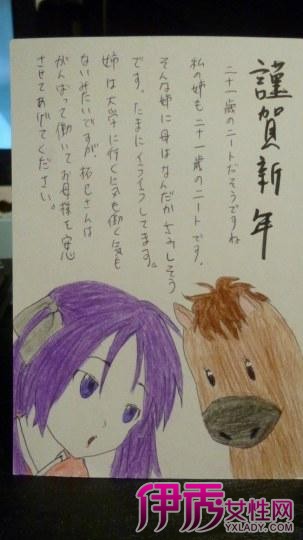 謹賀新年
二十一歳のニートだそうですね
私の姉も二十一歳のニートです。
そんな姉に母はなんだかさみしそう
です。たまにイライラしてます。
姉は大学に行く気も働く気も
ないみたいですが、拓巳さんは
がんばって働いてお母様を安心
させてあげてください。
伊秀女性网
YXLADY.COM